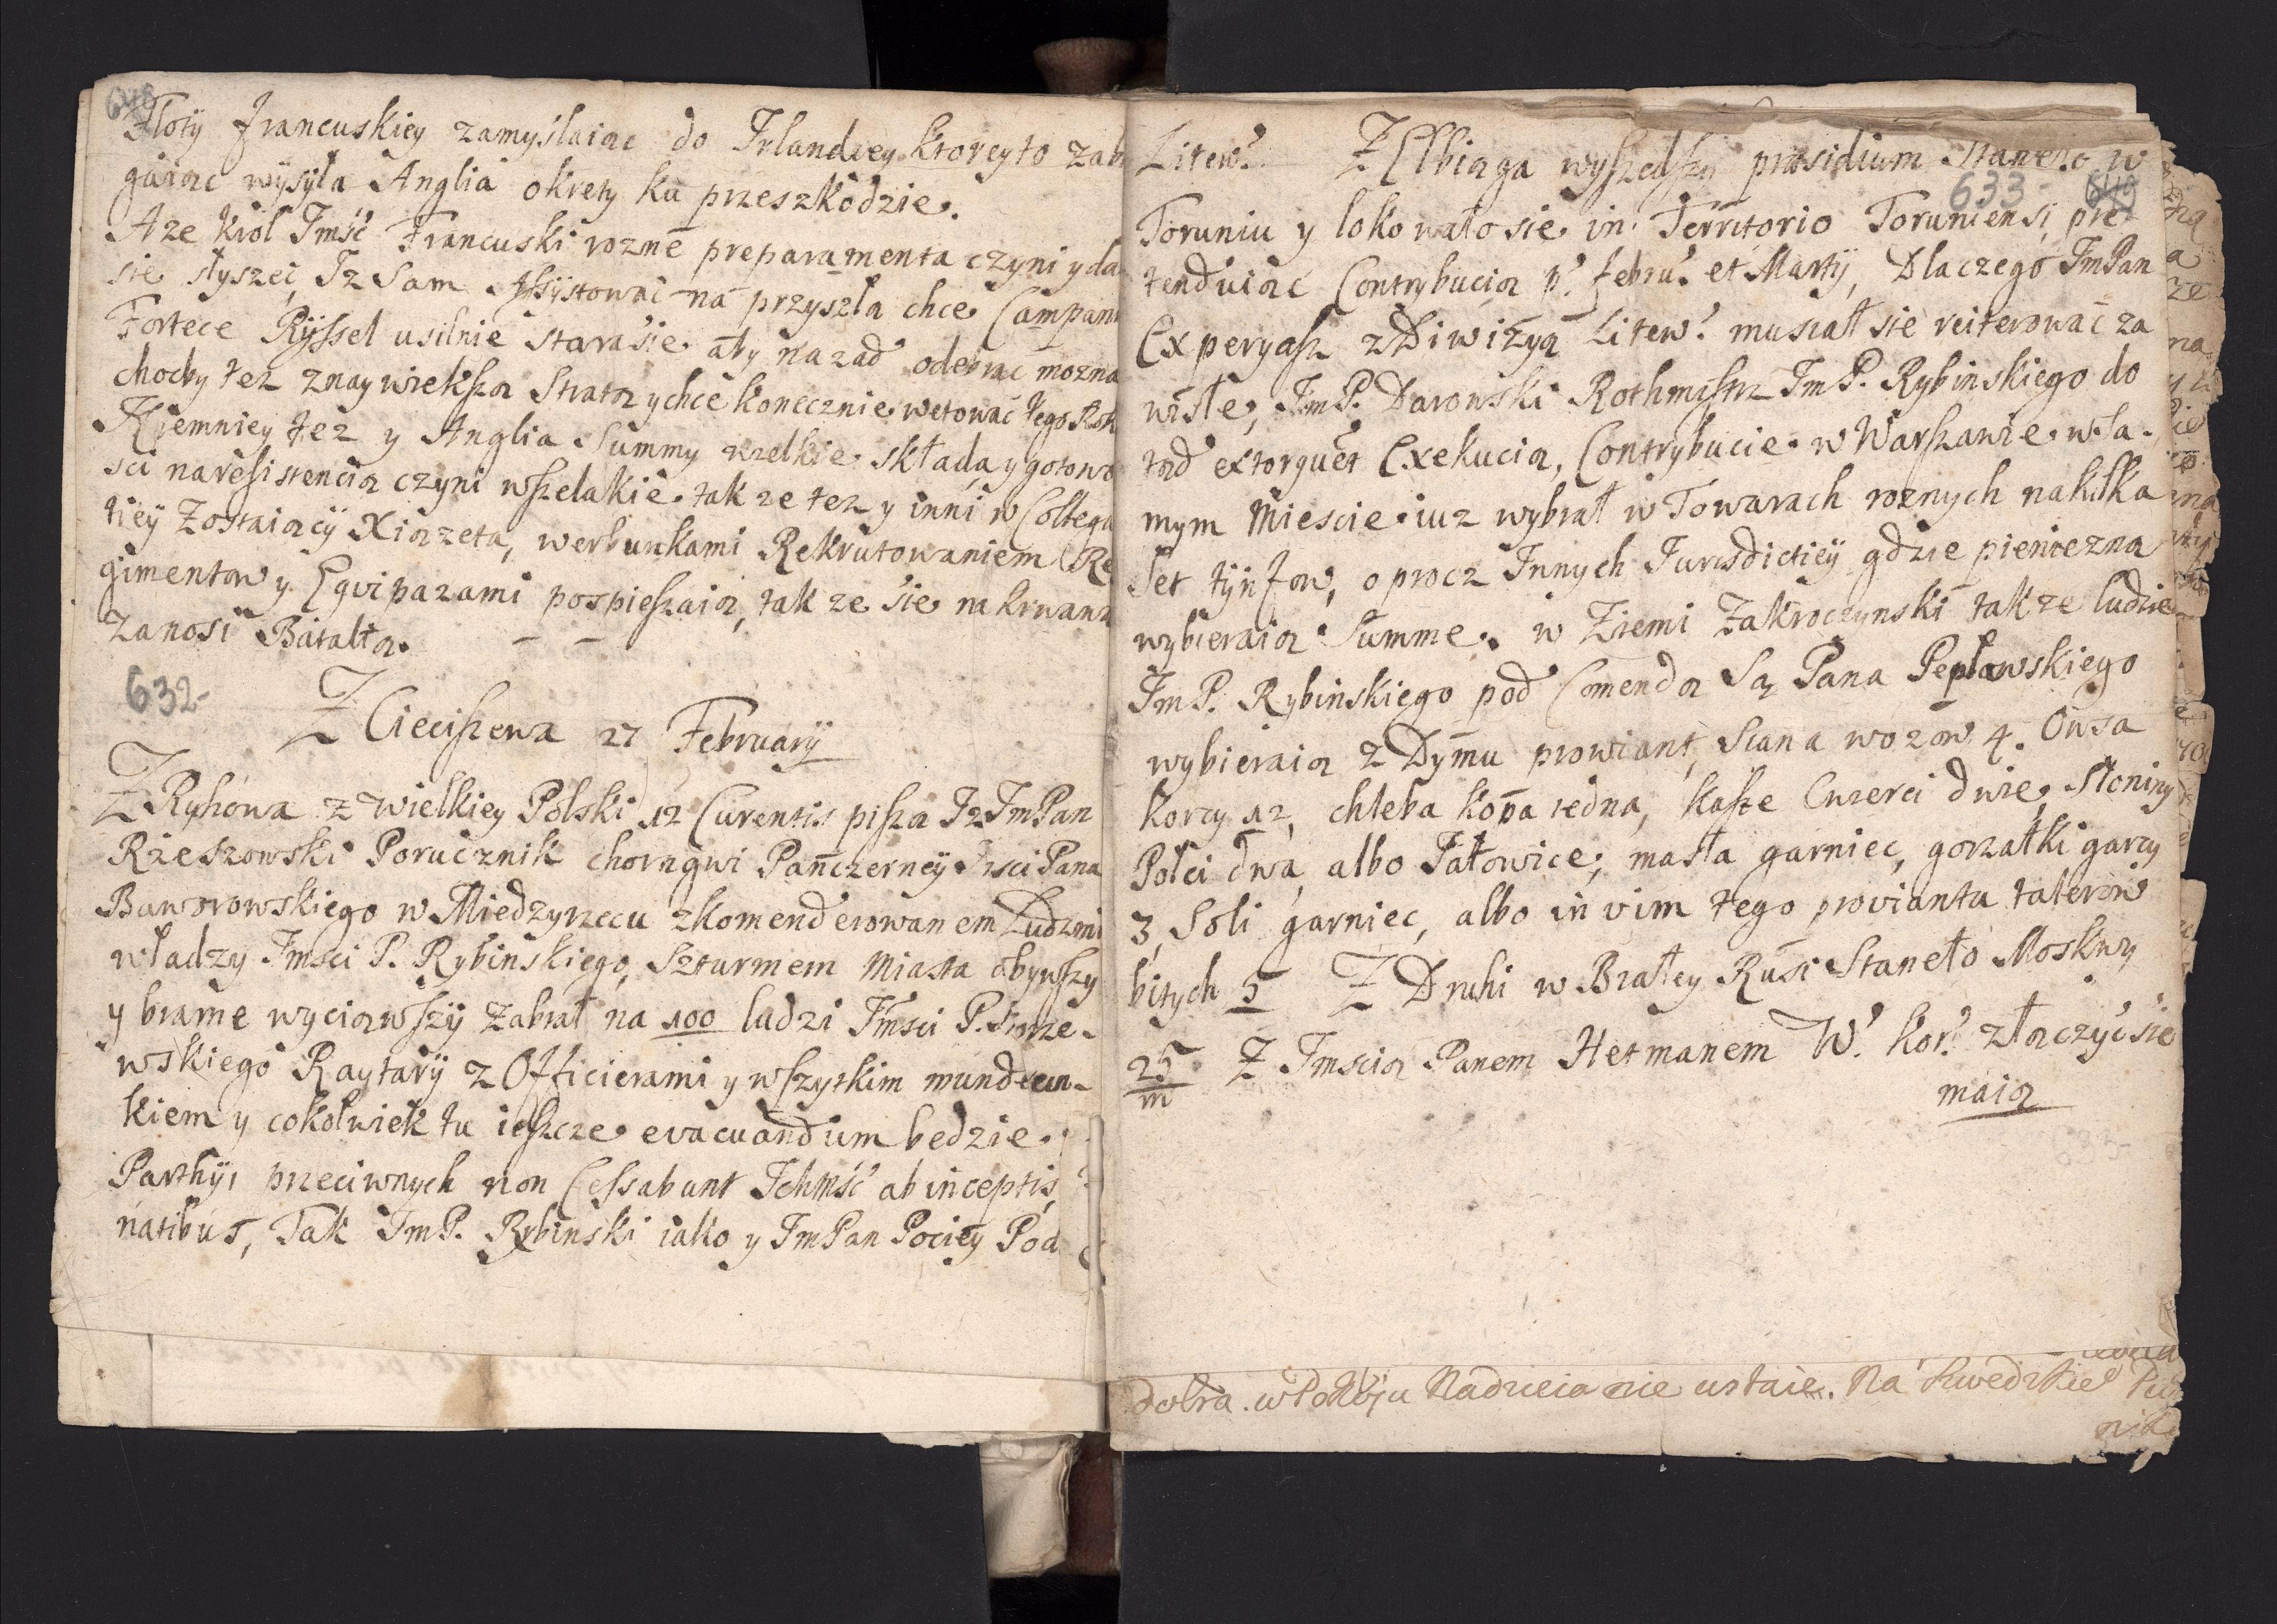 Floty francuskiey zamyslaiąc do Irlandiey ktoreyto zab
gaiąc wysyła Anglia okręty ku przeszkodzie.
A że Krol Jmść Francuski rozne preparamenta czyni y da
się słyszeć, Iż Sam assystować na przyszła chce Campani
Fortece Ryssel usilnie stara się aby nazad odebrać można
choćby też znaywiekszą Stratą y chce koniecznie wetować tego Rok
Niemniey też y Anglia Summy wielkie składa, y gotowo
sci na resistencią czyni wszelakie tak ze tez y inni w Collega
tiey Zostaiący Xiązeta, werbunkami Rekrutowaniem Re
gimentow y Eqvipazami pospieszaią, tak ze się na krwaw
zanosi Batalią.
632-
Z Cieciszewa 27 February
Z Ryhowa z Wielkiey Polski 12 Curentis piszą Iz JmPan
Rzeszowski Porucznik chorągwi Panczerney Jmsci Pana
Baworowskiego w Miedzyrzecu zkomenderowanem Ludzmi
władzy Jmsci P. Rybinskiego, Szturmem Miasta dbywszy
y brame wyciąwszy Zabrał na 100 ludzi Jmsci P.
wskiego Raytary z Officierami y wszytkim mundeun-
kiem y cokolwiek tu ieszcze evacuandum bedzie.
Parthyi przeciwnych non Cessabunt Ichmść ab inceptis
natibus, Tak JmP. Rybinski iako y JmPan Pociey Pod
Litew. Z Elbiąga wyszedszy præsidium Staneło w
633-
Toruniu y lokowało sie in Territorio Toruniensi pre-
tenduiąc Contrybucią p. febru. et Marty, Dlaczego JmPan
Experyasz z Diwizyą Litew. musiał sie reiterować za
wisłe, JmP. Darowski Rothmistrz JmP. Rybinskiego do
tąd extorquet Exekucią, Contrybucie w Warszawie w Sa-
mym Miescie iuz wybrał w Towarach roznych na kilka
Set tynfow, oprocz Innych Jurisdictiey gdzie pienieżną
wybieraią Summe. w Ziemi Zakroczynski takze ludzie
JmP. Rybinskiego pod Comendą Są Pana Pepłowskiego
wybieraią z Dymu prowiant, Siana wozow 4. Owsa
korcy 12, chleba kopa iedna, kasze Cwierci dwie, Słoniny
Połci dwa, albo Jałowice, masła garniec, gorzałki garcy
3, Soli garniec, albo in vim tego proviantu talerow
bitych 5 Z Druhi w Białey Rusi Staneło Moskwy
25 Z Jmscią Panem Hetmanem W. Kor. złączyć sie
m
maią
dobra. w Pokoju Nadzieia nie ustaie. Na Swedzkie